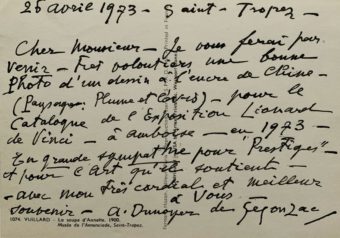 25 avril 1973 - Saint-Tropez -
Cher Monsieur - Je vous ferai par-
venir - très volontiers une bonne
Photo d'un dessin à l'encre de Chine -
(Paysage. Plume et lavis) - pour le
Catalogue de l'Exposition Léonard
de Vinci - à Amboise - en 1973 -
En grande sympathie pour "Prestiges" -
et pour l'Art qu'il soutient -
- avec mon très cordial et meilleur
souvenir - à Vous -
A. Dunoyer de Segonzac
1074. VUILLARD - La soupe d'Annette. 1900.
Musée de l'Annonciade, Saint-Tropez.